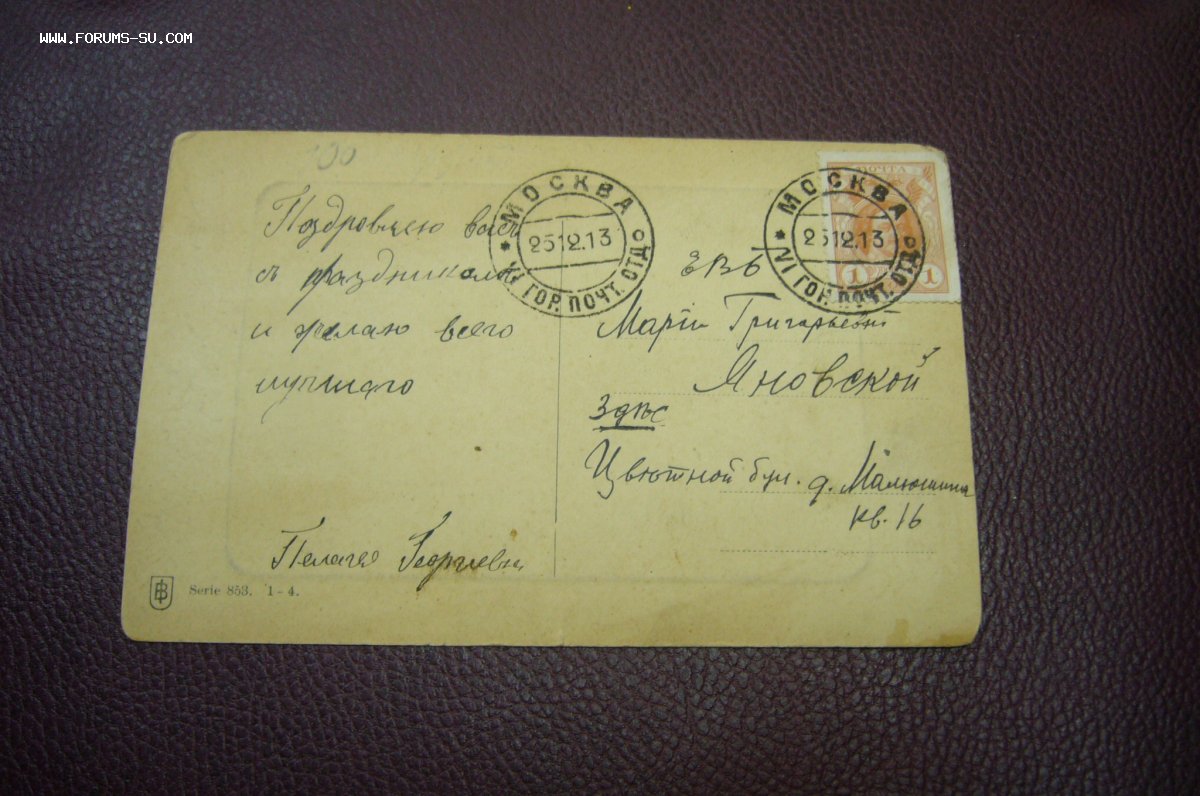 WWW.FORUMS-SU.COM
100
Поздровляю васъ
съ праздникомъ
и желаю всего
лучшаго
Пелагея Георгиевна
Serie 853. 1-4.
МОСКВА
25 12.13
VI ГОР. ПОЧТ. ОТД.
МОСКВА
25 12.13
VI ГОР. ПОЧТ. ОТД.
ПОЧТА
1 1
ЕВБ
Маріи Григорьевнѣ
Яновской
Здѣс
Цвѣтной бул. д. Малюшина
кв. 16